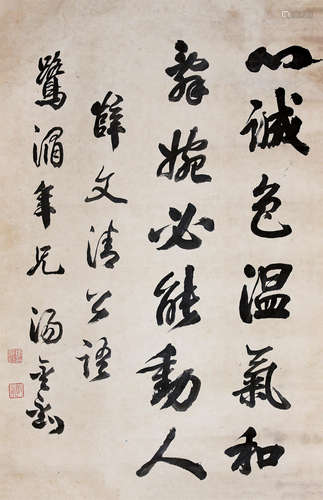 心诚色温氣和
辞婉必能動人
薛文清公語
鷺湄年兄 湯金釗